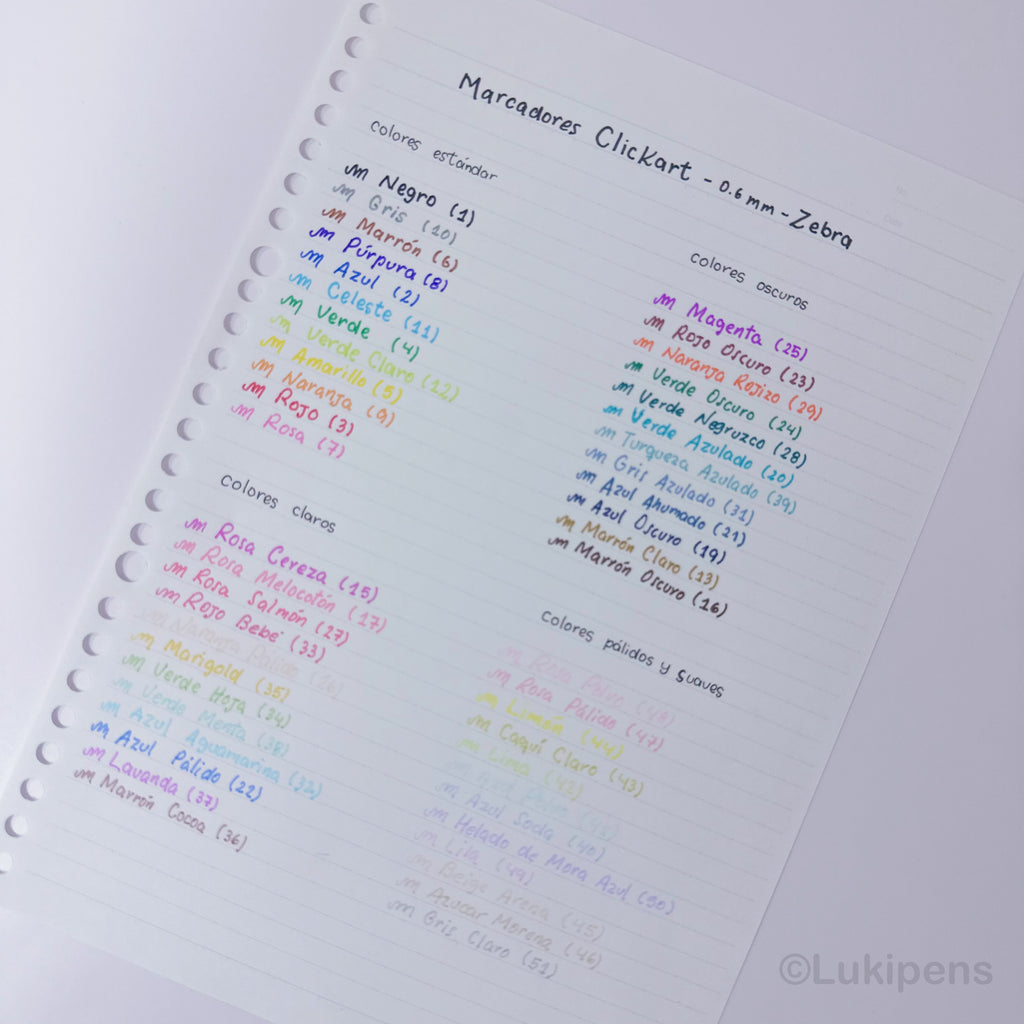 Marcadores Clickart - 0.6 mm - Zebra
colores estándar
Negro (1)
Gris (10)
Marrón (6)
Púrpura (8)
Azul (2)
Celeste (11)
Verde (4)
Verde Claro (12)
Amarillo (5)
Naranja (9)
Rojo (3)
Rosa (7)
colores claros
Rosa Cereza (15)
Rosa Melocotón (17)
Rosa Salmón (27)
Rojo Bebé (33)
Naranja Pálido (26)
Marigold (35)
Verde Hoja (34)
Verde Menta (38)
Azul Aguamarina (32)
Azul Pálido (22)
Lavanda (37)
Marrón Cocoa (36)
colores oscuros
Magenta (25)
Rojo Oscuro (23)
Naranja Rojizo (29)
Verde Oscuro (24)
Verde Negruzco (28)
Verde Azulado (20)
Turqueza Azulado (39)
Gris Azulado (31)
Azul Ahumado (21)
Azul Oscuro (19)
Marrón Claro (13)
Marrón Oscuro (16)
colores pálidos y suaves
Rosa Polvo (48)
Rosa Pálido (47)
Limón (44)
Caqui Claro (43)
Lima (42)
Polvo (41)
Azul Soda (40)
Helado de Mora Azul (50)
Lila (49)
Beige Arena (45)
Azucar Morena (46)
Gris Claro (51)
©Lukipens